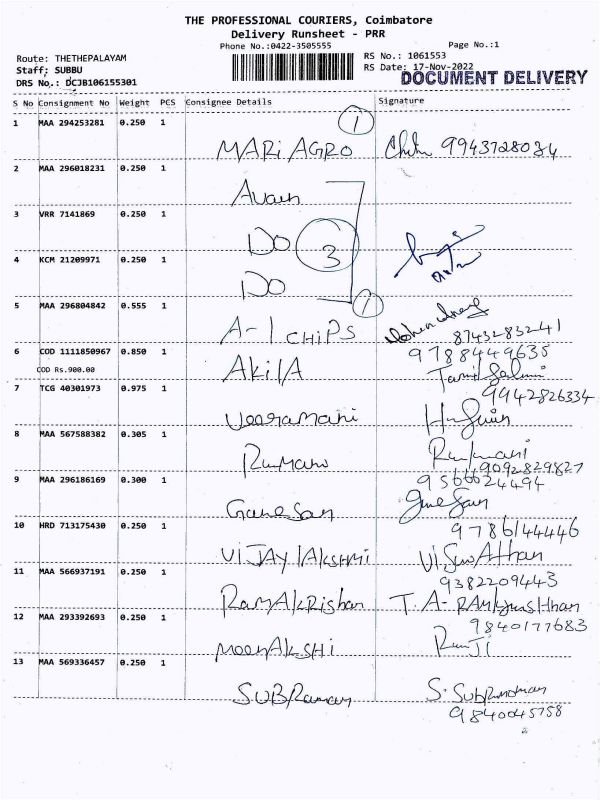 THE PROFESSIONAL COURIERS, Coimbatore
Delivery Runsheet - PRR
Phone No.:0422-3505555
Page No.:1
Route: THETHEPALAYAM
RS No.: 1061553
Staff: SUBBU
RS Date: 17-Nov-2022
DRS No.: DCJB106155301
DOCUMENT DELIVERY
S No Consignment No Weight PCS Consignee Details Signature
1 MAA 294253281 0.250 1 1
MARI AGRO 9943728084
2 MAA 296018231 0.250 1
3 VRR 7141869 0.250 1
DO 3
4 KCM 21209971 0.250 1
DO
5 MAA 296804842 0.555 1 1
A-1 CHIPS 8743283241
6 COD 1111850967 0.850 1 9788449635
COD Rs.900.00 Akila
7 TCG 40301973 0.975 1 9942826334
Veeramani
8 MAA 567588382 0.305 1
9092829827
9 MAA 296186169 0.300 1 9566624494
Ganesan
10 HRD 713175430 0.250 1 9786144446
VIJAYlAKSHMI
11 MAA 566937191 0.250 1 9382209443
RamAkRishan
12 MAA 293392693 0.250 1 9840177683
MeenAkSHI RamJi
13 MAA 569336457 0.250 1
SUBRaman
9840045758